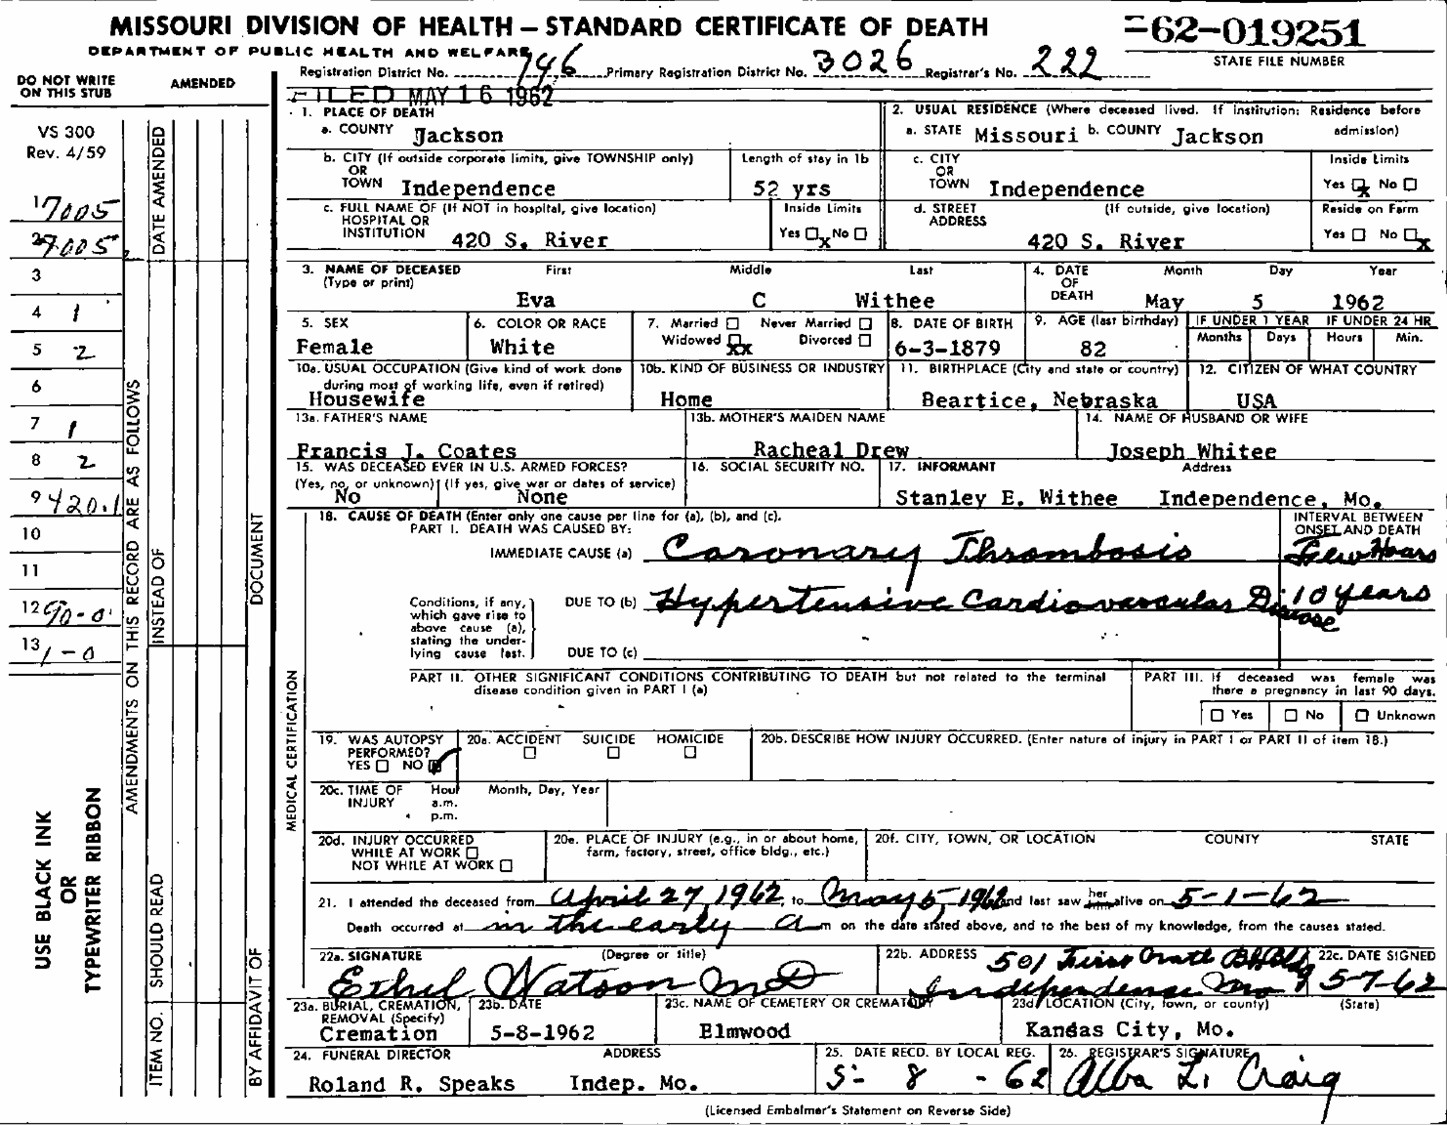 MISSOURI DIVISION OF HEALTH — STANDARD CERTIFICATE OF DEATH
62-019251
DEPARTMENT OF PUBLIC HEALTH AND WELFARE
STATE FILE NUMBER
Registration District No. 746 Primary Registration District No. 3026 Registrar's No. 222
DO NOT WRITE ON THIS STUB
AMENDED
FILED MAY 16 1962
VS 300
Rev. 4/59
1 7005
2 7005
3
4 1
5 2
6
7 1
8 2
9 420.1
10
11
12 90-0
13 1-0
USE BLACK INK
OR
TYPEWRITER RIBBON
AMENDMENTS ON THIS RECORD ARE AS FOLLOWS
DATE AMENDED
INSTEAD OF
DOCUMENT
ITEM NO.
SHOULD READ
BY AFFIDAVIT OF
1. PLACE OF DEATH
a. COUNTY Jackson
2. USUAL RESIDENCE (Where deceased lived. If institution: Residence before admission)
a. STATE Missouri b. COUNTY Jackson
b. CITY (If outside corporate limits, give TOWNSHIP only) OR TOWN Independence
Length of stay in 1b 52 yrs
c. CITY OR TOWN Independence
Inside Limits Yes x No
c. FULL NAME OF (If NOT in hospital, give location) HOSPITAL OR INSTITUTION 420 S. River
Inside Limits Yes x No
d. STREET ADDRESS (If outside, give location) 420 S. River
Reside on Farm Yes No x
3. NAME OF DECEASED (Type or print) First Middle Last
Eva C Withee
4. DATE OF DEATH Month Day Year
May 5 1962
5. SEX Female
6. COLOR OR RACE White
7. Married Never Married Widowed xx Divorced
8. DATE OF BIRTH 6-3-1879
9. AGE (last birthday) 82
IF UNDER 1 YEAR Months Days
IF UNDER 24 HR Hours Min.
10a. USUAL OCCUPATION (Give kind of work done during most of working life, even if retired) Housewife
10b. KIND OF BUSINESS OR INDUSTRY Home
11. BIRTHPLACE (City and state or country) Beartice, Nebraska
12. CITIZEN OF WHAT COUNTRY USA
13a. FATHER'S NAME Francis J. Coates
13b. MOTHER'S MAIDEN NAME Racheal Drew
14. NAME OF HUSBAND OR WIFE Joseph Whitee
15. WAS DECEASED EVER IN U.S. ARMED FORCES?
(Yes, no, or unknown) (If yes, give war or dates of service)
No None
16. SOCIAL SECURITY NO.
17. INFORMANT Address
Stanley E. Withee Independence, Mo.
MEDICAL CERTIFICATION
18. CAUSE OF DEATH (Enter only one cause per line for (a), (b), and (c).
PART I. DEATH WAS CAUSED BY:
INTERVAL BETWEEN ONSET AND DEATH
IMMEDIATE CAUSE (a) Coronary Thrombosis Few Hours
Conditions, if any, which gave rise to above cause (a), stating the underlying cause last.
DUE TO (b) Hypertensive Cardiovascular Disease 10 years
DUE TO (c)
PART II. OTHER SIGNIFICANT CONDITIONS CONTRIBUTING TO DEATH but not related to the terminal disease condition given in PART I (a)
PART III. If deceased was female was there a pregnancy in last 90 days.
Yes No Unknown
19. WAS AUTOPSY PERFORMED? YES NO
20a. ACCIDENT SUICIDE HOMICIDE
20b. DESCRIBE HOW INJURY OCCURRED. (Enter nature of injury in PART I or PART II of item 18.)
20c. TIME OF INJURY Hour a.m. p.m. Month, Day, Year
20d. INJURY OCCURRED WHILE AT WORK NOT WHILE AT WORK
20e. PLACE OF INJURY (e.g., in or about home, farm, factory, street, office bldg., etc.)
20f. CITY, TOWN, OR LOCATION COUNTY STATE
21. I attended the deceased from April 27, 1962, to May 5, 1962 and last saw her alive on 5-1-62
Death occurred at in the early A m on the date stated above, and to the best of my knowledge, from the causes stated.
22a. SIGNATURE (Degree or title) Ethel Watson MD
22b. ADDRESS 501 First Natl Bk Bldg Independence Mo
22c. DATE SIGNED 5-7-62
23a. BURIAL, CREMATION, REMOVAL (Specify) Cremation
23b. DATE 5-8-1962
23c. NAME OF CEMETERY OR CREMATORY Elmwood
23d. LOCATION (City, town, or county) (State) Kandas City, Mo.
24. FUNERAL DIRECTOR ADDRESS
Roland R. Speaks Indep. Mo.
25. DATE RECD. BY LOCAL REG. 5-8-62
26. REGISTRAR'S SIGNATURE Alba L. Craig
(Licensed Embalmer's Statement on Reverse Side)